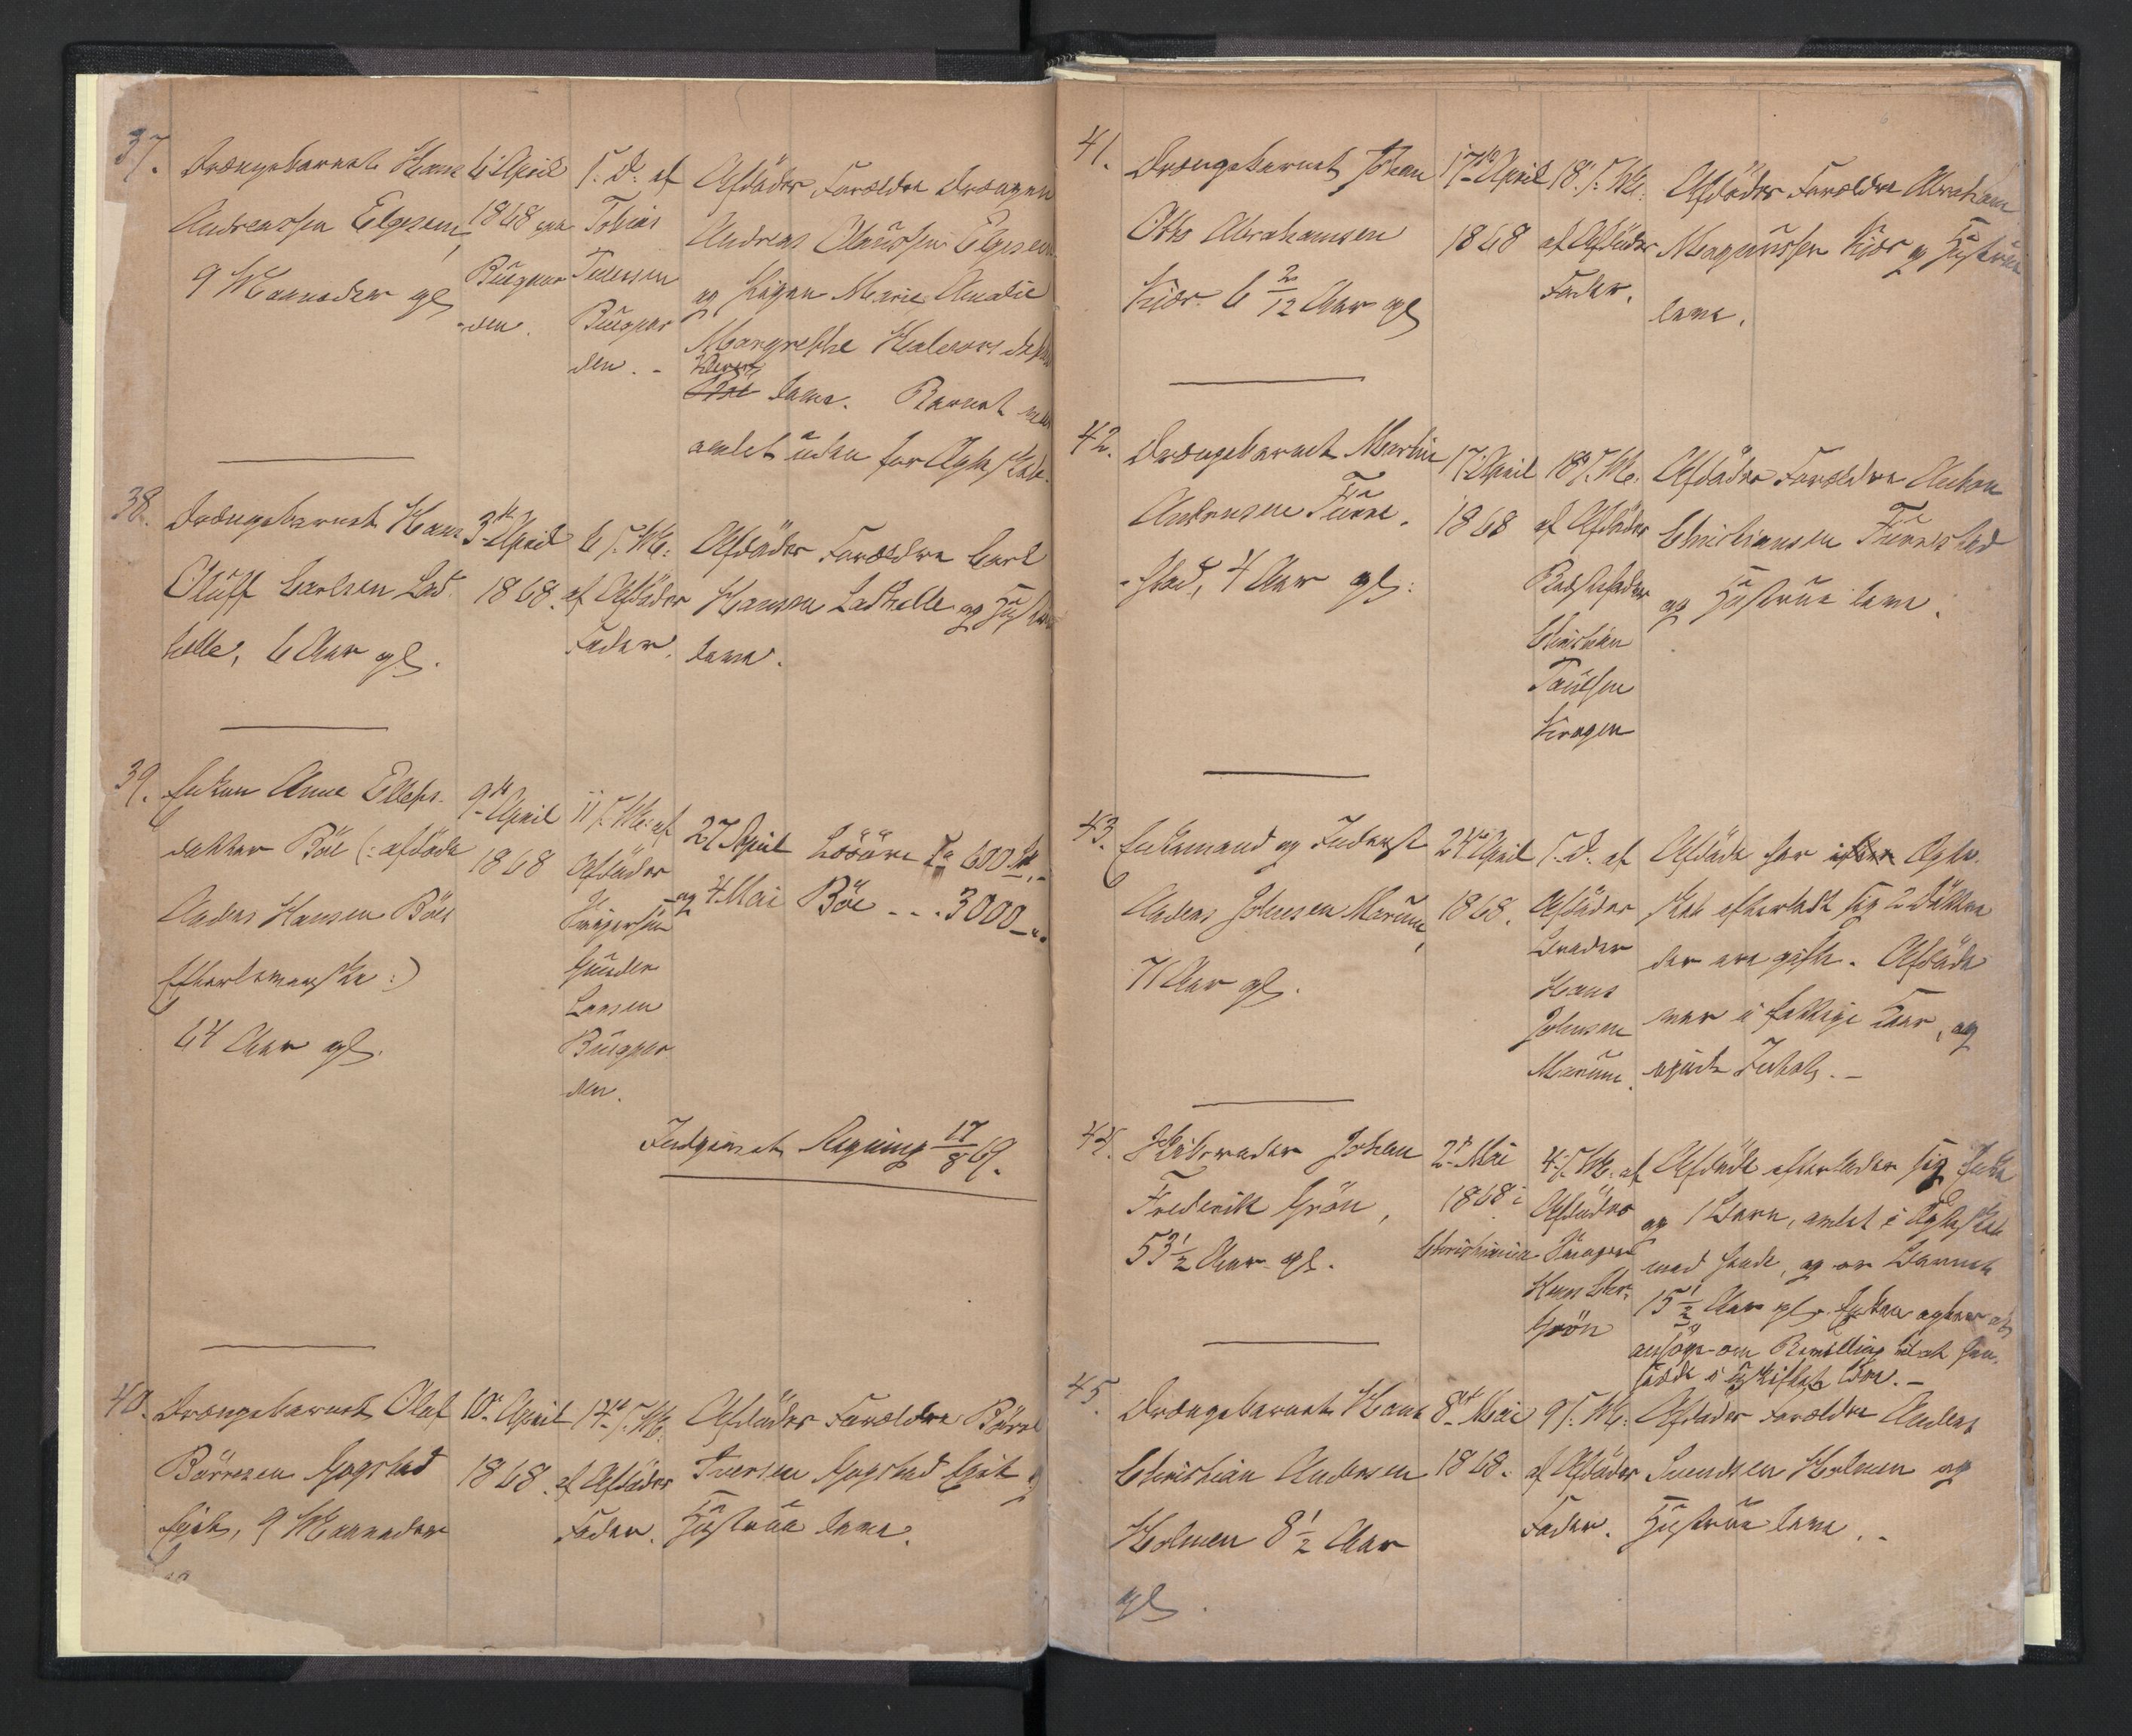 37.
Drængebarnet Hans
Andreassen Elgesem,
9 Maaneder gl
6 April
1868 paa
Buegaar
-den.
s. D. af
Tobias
Buegaar
den. -
Afdødes Forældre Drængen
Andreas Olaussen Elgesem
og Pigen Marie Amalie
Margrethe Halvorsdatter
leve. Barnet
avlet uden for Ægteskab.
38.
Drængebarnet Hans
Oluff Carlsen Lad-
helle, 6 Aar gl.
3die April
1868.
6 s. M.
af Afdødes
Fader.
Afdødes Forældre Carl
Hansen Ladhelle og Hustrue
leve.
39.
Enken Anne Ellefs-
datter Böe (: afdöde
Anders Hansen Böes
Efterleverske :)
64 Aar gl.
9de April
1868
11 s. M. af
Afdødes
Svigersön
Gunder
Larsen
Buegaar
den.
27 April
og 4 Mai
Lösöre 600
Böe - - - 3000 -
Indgivet Regning 17/8 69.
40.
Drængebarnet Olaf
Börresen Gogstad
Eje, 9 Maaneder
10de April
1868.
14de s. M.
af Afdødes
Fader.
Afdødes Forældre Börre
Iversen Gogstad Eje og
Hustrue leve.
41.
Drængebarnet Johan
Otto Abrahamsen
Kjær 6 2/12 Aar gl
17de April
1868
18 s. M.
af Afdødes
Fader.
Afdødes Forældre Abraham
Magnussen Kjær og Hustrue
leve.
42.
Drængebarnet Martin
Antonsen Furre-
-stad, 4 Aar gl.
17 April
1868
18 s. M.
af Afdødes
Bedstefader
Christian
Paulsen
Krogen
Afdødes Forældre Anton
Christiansen Furrestad
og Hustrue leve.
43.
Enkemand og Inderst
Anders Johnsen Marum,
71 Aar gl.
24de April
1868.
s. D. af
Afdødes
Broder
Hans
Johnsen
Marum.
Afdöde har i Ægte-
skab efterladt sig 2 Döttre
der ere gifte. Afdöde
var i fattige Kaar, og
njöd Indhold. -
44.
Skibsreder Johan
Frederik Grön,
53 1/2 Aar gl.
2den Mai
1868 i
Christiania
4 s. M. af
Afdødes
Svoger
Hans Chr.
Grön
Afdöde efterlader sig Enke
og 1 Barn, avlet i Ægteskab
med hende, og er Barnet
15 1/2 Aar gl. Enken agter at
ansöge om Bevilling til at hen-
sidde i uskiftet Boe. -
45.
Drængebarnet Hans
Christian Andersen
Holmen 8 1/2 Aar
gl.
8de Mai
1868.
9 s. M.
af Afdødes
Fader.
Afdødes Forældre Anders
Svendsen Holmen og
Hustrue leve. -